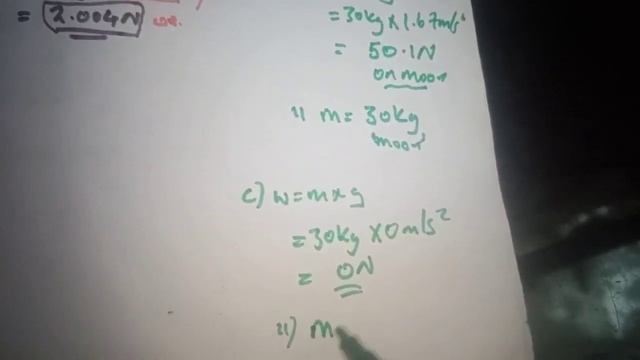 = 2.004N
= 30kg x 1.67m/s²
= 50.1N
on moon
ii) m = 30kg
moon
c) w = m x g
= 30kg x 0m/s²
= 0N
ii) m